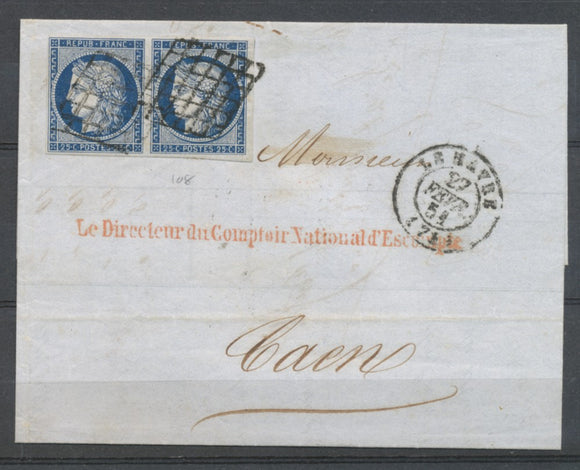 REPUB FRANC REPUB FRANC
25 C POSTES 25 C 25 C POSTES 25 C
108
Monsieur
LE HAVRE
22
FEVR.
51
Le Directeur du Comptoir National d'Escompte
Caen